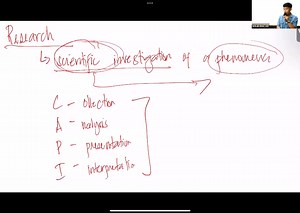 Research
↳ scientific investigation of a phenomenon
C - ollection
A - nalysis
P - presentation
I - interpretation